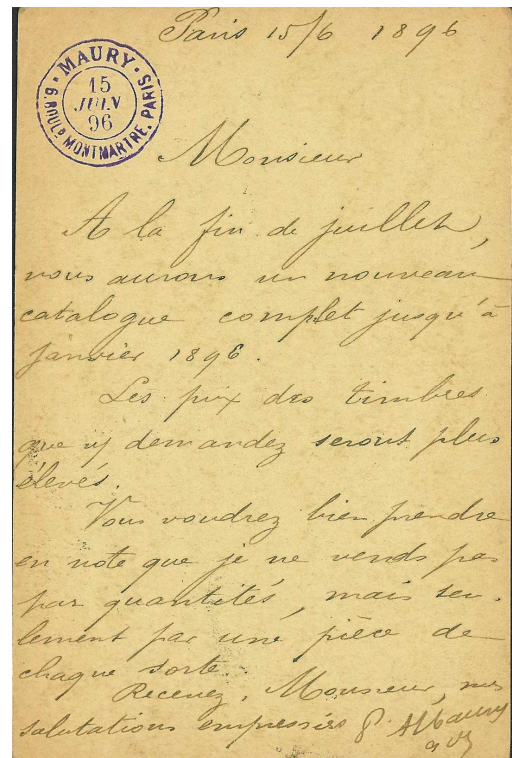 Paris 15/6 1896
MAURY
15
JUIN
96
6. BOUL.D MONTMARTRE. PARIS
Monsieur
A la fin de juillet,
nous aurons un nouveau
catalogue complet jusqu'à
janvier 1896.
Les prix des timbres
que v/ demandez seront plus
élevés.
Vous voudrez bien prendre
en note que je ne vends pas
par quantités, mais seu-
lement par une pièce de
chaque sorte.
Recevez, Monsieur, mes
salutations empressées P. A Maury